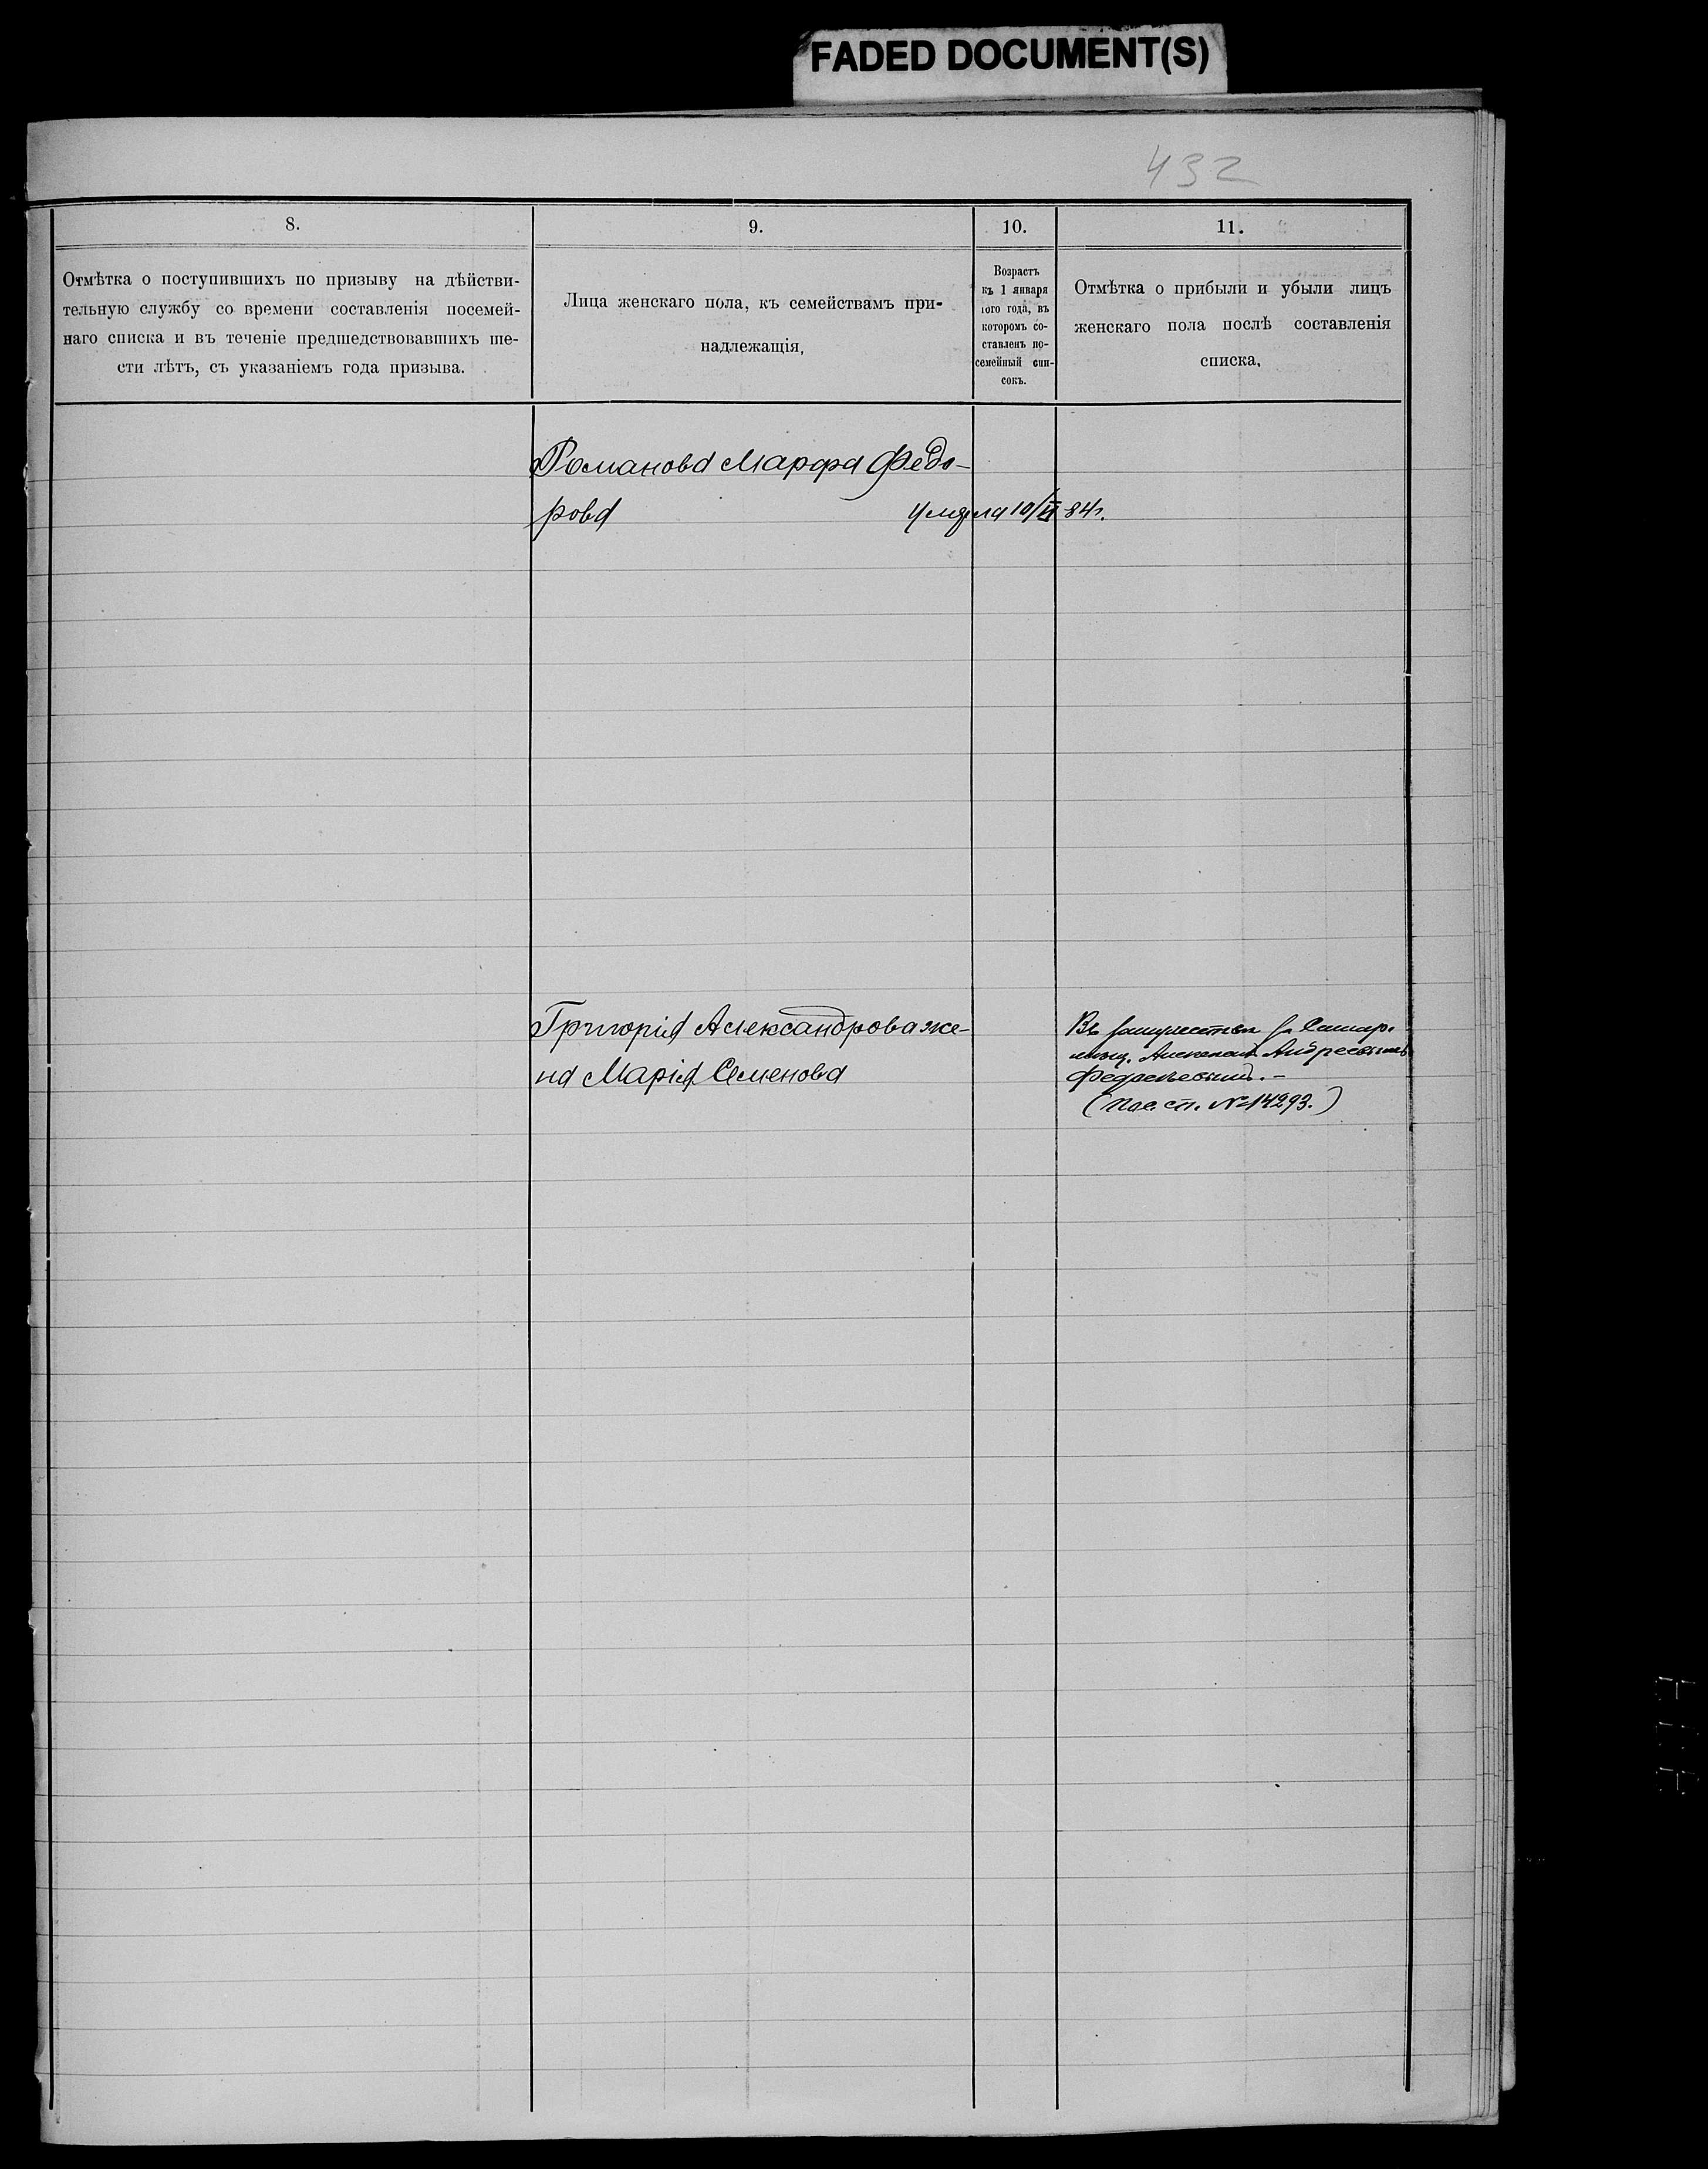 FADED DOCUMENT(S)
432
8.
Отмѣтка о поступившихъ по призыву на дѣйстви-
тельную службу со времени составленія посемей-
наго списка и въ теченіе предшедствовавшихъ ше-
сти лѣтъ, съ указаніемъ года призыва.
9.
Лица женскаго пола, къ семействамъ при-
надлежащія,
10.
Возрастъ
къ 1 января
того года, въ
которомъ со-
ставленъ по-
семейный спи-
сокъ.
11.
Отмѣтка о прибыли и убыли лицъ
женскаго пола послѣ составленія
списка.
Романова Марфа Федо-
рова
умерла 10/VI 84 г.
Григорія Александрова же-
на Марія Семенова
Въ замужествѣ за Самар.
мѣщ. Андреевымъ
(Пос. сп. № 14293.)